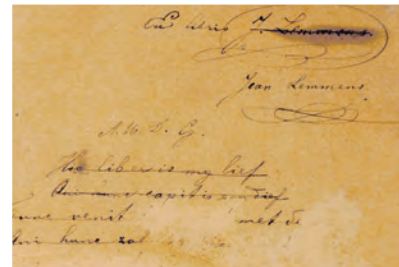 Ex libris J. Lemmens.
Jean Lemmens.
A. M. D. G.
Hic liber is my lief
Qui hunc capit is een dief
venit met de
Qui hunc zal